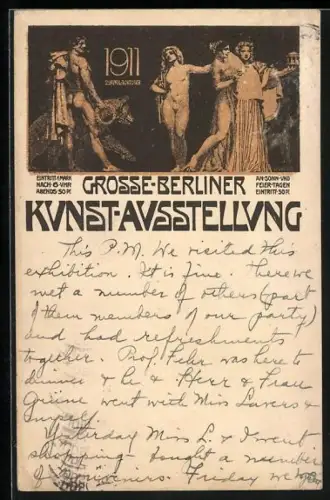 1911
EINTRITT 1 MARK
NACH 6 VHR
ABENDS 50 PF.
AN SONN- VND
FEIERTAGEN
EINTRITT 50 PF.
GROSSE-BERLINER
KVNST-AVSSTELLVNG
This P.M. We visited this
exhibition. It is fine. There we
met a number of others (part
of them members of our party)
and had refreshments
together. Prof. Fehr was here to
dinner & he & Herr & Frau
went with Miss Lavers &
myself.
Yesterday Miss L. & I went
shopping - bought a number
of souvenirs. Friday we